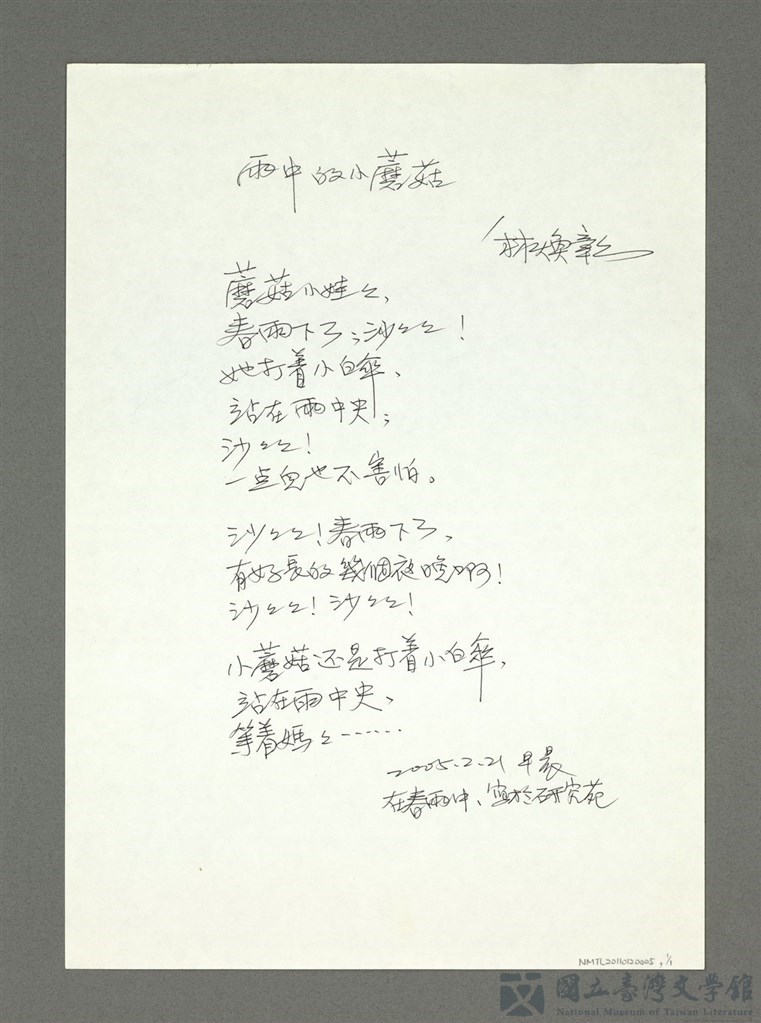 雨中的小蘑菇
林煥彰
蘑菇小娃々、
春雨下了；沙々々！
她打着小白傘、
站在雨中央；
沙々々！
一点儿也不害怕。
沙々々！春雨下了、
有好長的幾個夜晚啊！
沙々々！沙々々！
小蘑菇还是打着小白傘、
站在雨中央、
等着媽々……
2005.2.21 早晨
在春雨中、寫於研究苑
NMTL20110120005, 1/1
國立臺灣文學館
National Museum of Taiwan Literature